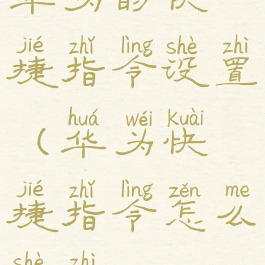 华为的快
jié zhǐ lìng shè zhì
捷指令设置
huá wéi kuài
(华为快
jié zhǐ lìng zěn me
捷指令怎么
shè zhì